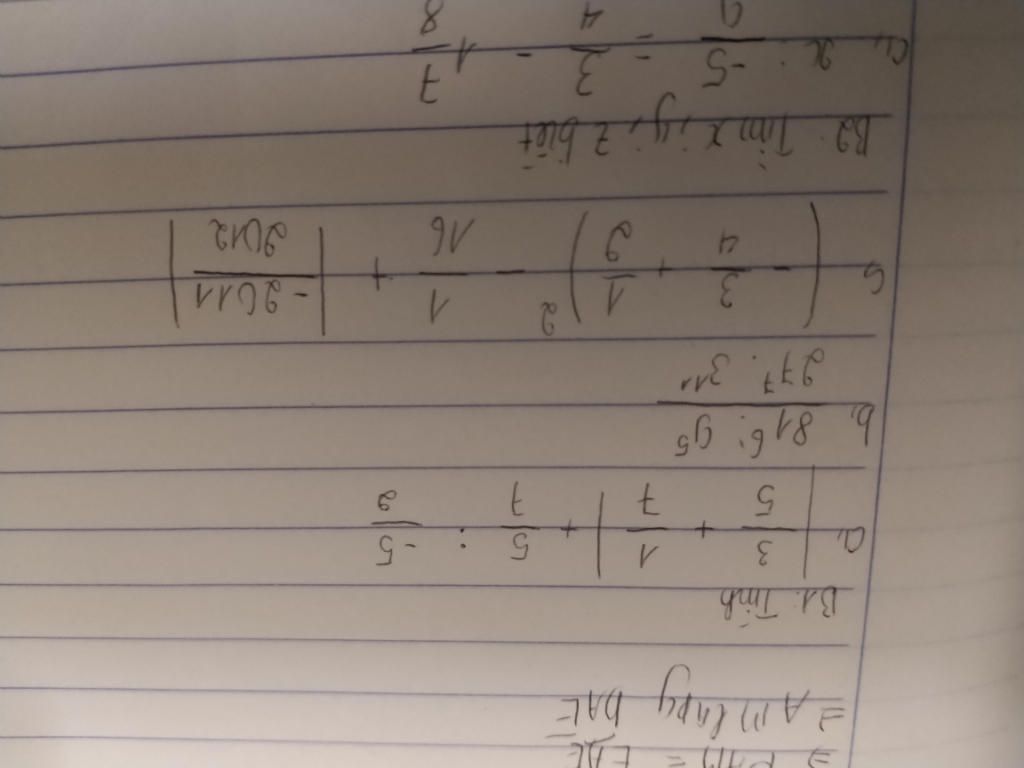 ⇒ AM là p/g DAE
B1: Tính
a, |3/5 + 1/7| + 5/7 : -5/2
b, 81⁶ : 9⁵ / 27⁷ : 3¹¹
c, (-3/4 + 1/2)² - 1/16 + |-2011/2012|
B2: Tìm x; y; z biết
a, x : -5/9 = 3/4 - 1 7/8